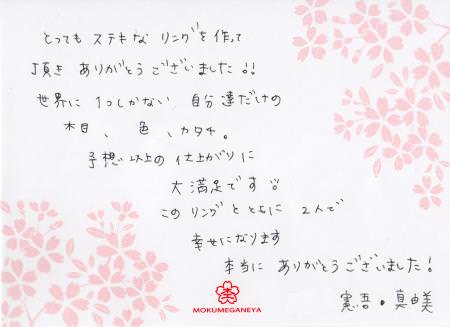 とっても ステキな リングを 作って
頂き ありがとう ございました!!
世界に 1つしかない 自分達だけの
木目、色、カタチ。
予想以上の 仕上がりに
大満足です!!
この リングと ともに 2人で
幸せになります
本当に ありがとうございました!
憲吾・真由美
MOKUMEGANEYA